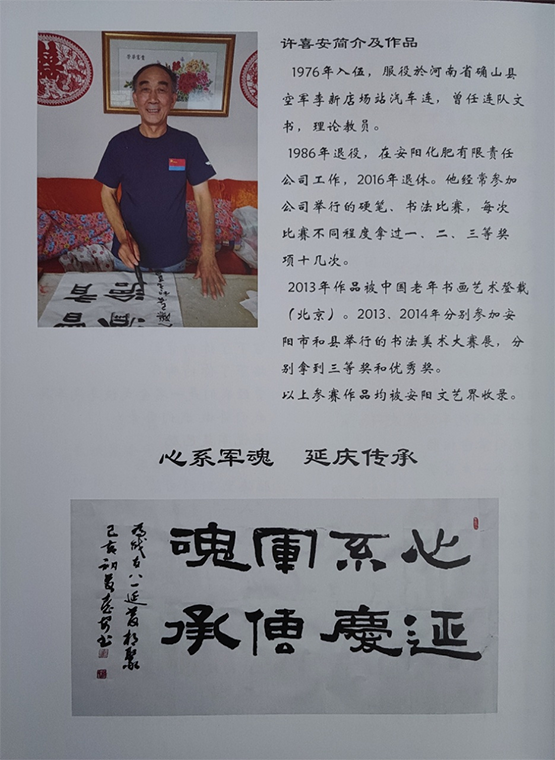 许喜安简介及作品
1976年入伍，服役於河南省确山县
空军李新店场站汽车连，曾任连队文
书，理论教员。
1986年退役，在安阳化肥有限责任
公司工作，2016年退休。他经常参加
公司举行的硬笔、书法比赛，每次
比赛不同程度拿过一、二、三等奖
项十几次。
2013年作品被中国老年书画艺术登载
（北京）。2013、2014年分别参加安
阳市和县举行的书法美术大赛展，分
别拿到三等奖和优秀奖。
以上参赛作品均被安阳文艺界收录。
心系军魂 延庆传承
心系軍魂
延慶傳承